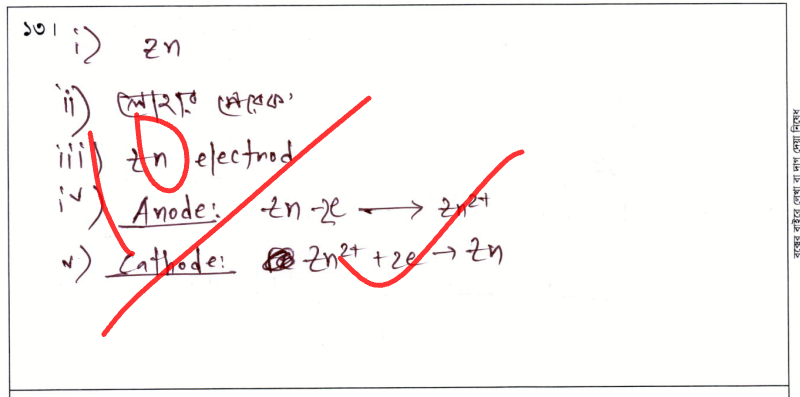 ১৩।
i) Zn
ii) লোহার পেরেক
iii) Zn electrod
iv) Anode: Zn - 2e ⟶ Zn²⁺
v) Cathode: Zn²⁺ + 2e → Zn
বক্সের বাইরে লেখা বা দাগ দেয়া নিষেধ